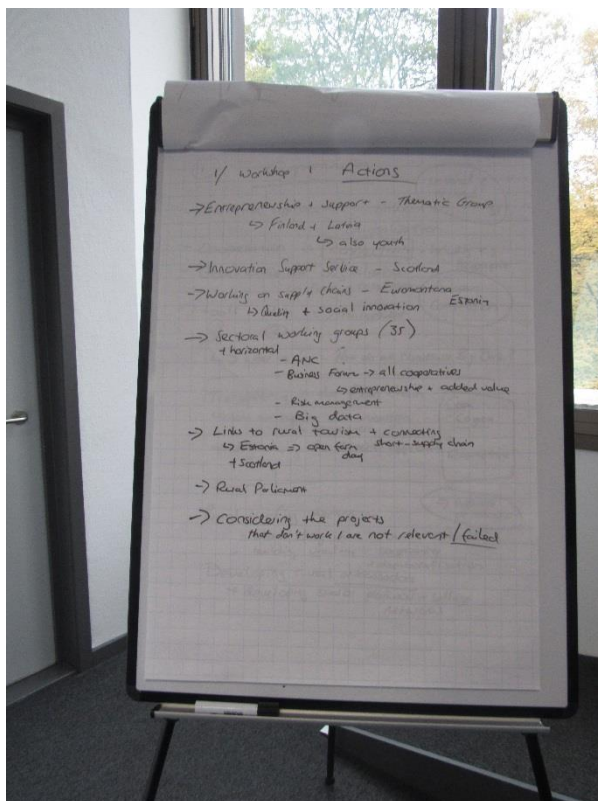 1/ Workshop 1 Actions
→ Entrepreneurship + support - Thematic Group
↳ Finland + Latvia
↳ also youth
→ Innovation Support Service - Scotland
→ Working on supply chains - Euromontana
↳ Quality + social innovation Estonia
→ Sectoral working groups (35)
+ horizontal
- ANC
- Business Forum → all cooperatives
↳ entrepreneurship + added value
- Risk management
- Big data
→ Links to rural tourism + connecting
↳ Estonia => open farm day short-supply chain
+ Scotland
→ Rural Parliament
→ Considering the projects
that don't work / are not relevant / failed